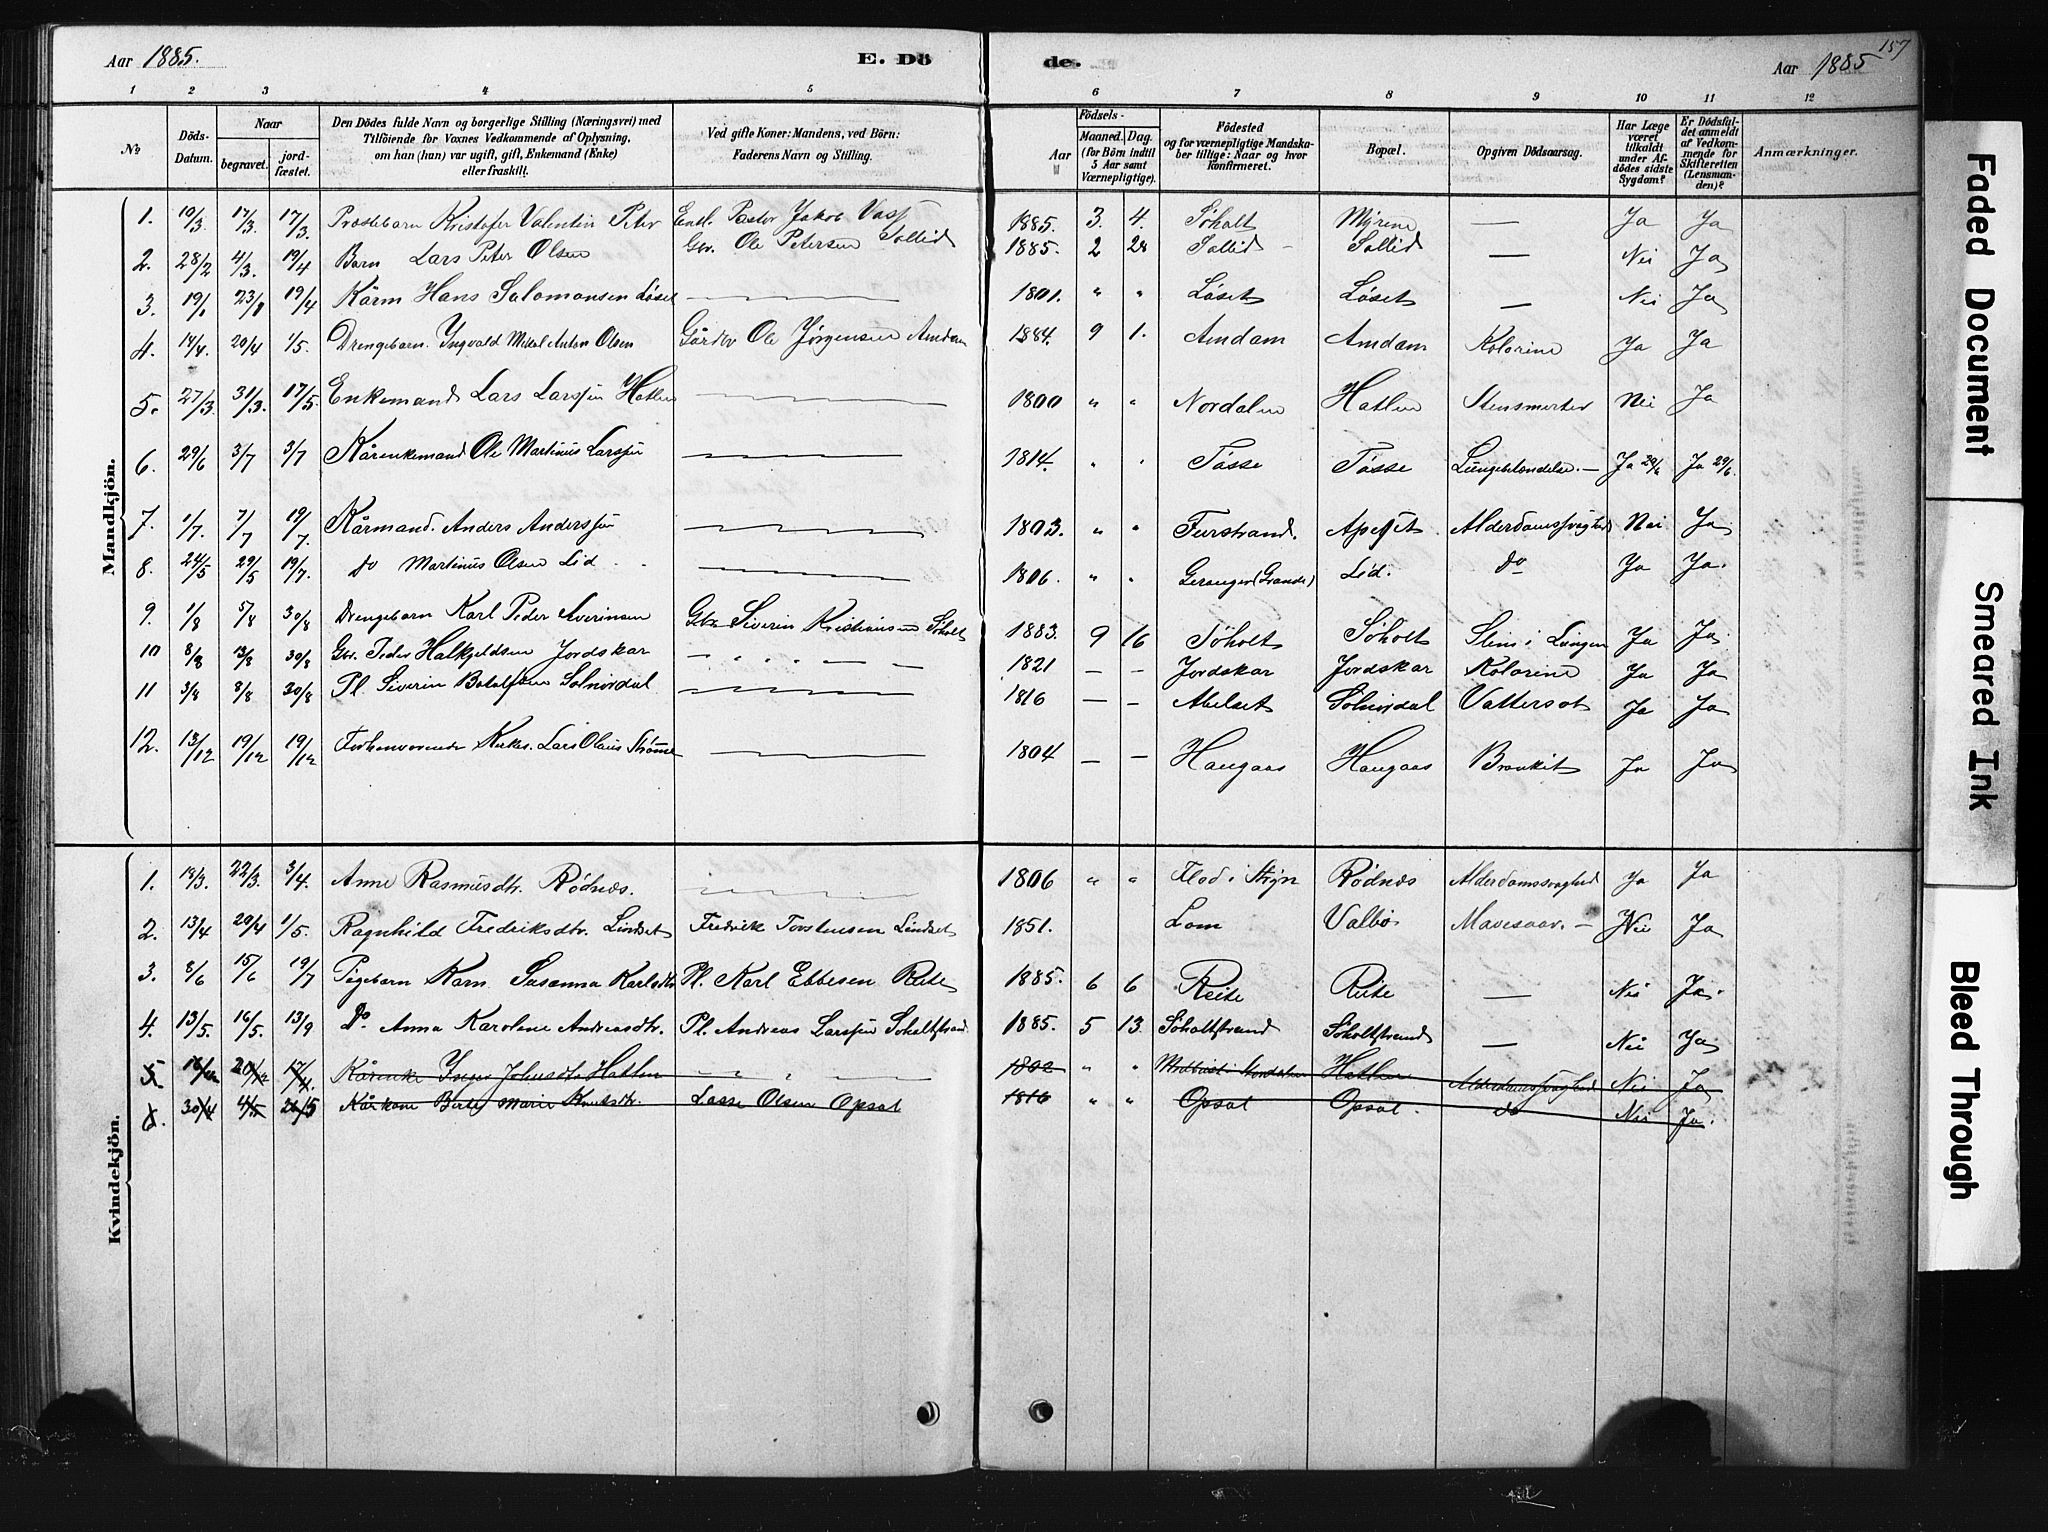 Aar 1885. E. Dö de. Aar 1885 157
1 2 3 4 5 6 7 8 9 10 11 12
No. Döds-Datum. Naar begravet. jordfæstet. Den Dödes fulde Navn og borgerlige Stilling (Næringsvei) med Tilföiende for Voxnes Vedkommende af Oplysning, om han (hun) var ugift, gift, Enkemand (Enke) eller fraskilt. Ved gifte Koner: Mandens, ved Börn: Faderens Navn og Stilling. Födsels- Aar Maaned. Dag. (for Börn indtil 5 Aar samt Værnepligtige). Födested og for værnepligtige Mandskaber tillige: Naar og hvor konfirmeret. Bopæl. Opgiven Dödsaarsag. Har Læge været tilkaldt under Afdödes sidste Sygdom? Er Dödsfaldet anmeldt af Vedkommende for Skifteretten (Lensmanden)? Anmærkninger.
Mandkjön.
1. 10/3. 17/3. 17/3. Kristofer Valentin Peter Pastor Jakob 1885. 3. 4. Søholt Myrene — Ja Ja
2. 28/2 4/3. 19/4 Barn Lars Peter Olsen Gbr. Ole Petersen Sollid 1885. 2 28 Sollid Sollid — Nei Ja
3. 19/1 23/1 19/4 Kårm Hans Salomonsen Løset 1801. " " Løset Løset — Nei Ja
4. 14/4. 20/4 1/5. Drengebarn. Ingvald Mikal Anton Olsen Gårdbr Ole Jørgensen Amdam 1884. 9 1. Amdam Amdam Kolorine Ja Ja
5. 27/3 31/3. 17/5. Enkemand Lars Larssen Hatlen 1800 " " Nordalen Hatlen Stensmerter Nei Ja
6. 29/6 3/7 3/7 Kårenkemand Ole Martinus Larssen 1814. " " Tøsse Tøsse Lungebtændelse. — Ja 29/6 Ja 29/6.
7. 1/7. 7/7 19/7. Kårmand. Anders Anderssen 1803. " " Furstrand. Apeset Alderdomssvaghed Nei Ja
8. 24/5 29/5 19/7. Do Martinus Olsen Lid 1806. " " Geranger (Grande) Lid. Do Ja Ja.
9. 1/8 5/8 30/8 Drengebarn Karl Peder Severinsen Gbr Siverin Kristiansen Søholt 1883. 9 16 Søholt Søholt Slim i Lungen Ja Ja
10 8/8 13/8 30/8 Gbr. Peder Halkjeldsen Jordskar 1821 — — Jordskar Jordskar Kolorine Ja Ja
11 3/8 8/8 30/8 Pl. Siverin Solnørdal 1816 — — Abelset Solnørdal Vattersot Ja Ja
12. 13/12 19/12 19/12 Forhenværende Kirkes. Lars Olaus Strømme 1804 — — Haugaas Haugaas Bronkit Ja Ja
Kvindekjön.
1. 18/3. 22/3. 3/4. Anne Rasmusdtr. Rødnæs. 1806 " " Flod i Stryn Rødnæs Alderdomssvaghed Ja Ja
2. 13/4 20/4 1/5. Ragnhild Fredriksdtr. Lindset Fredrik Torstensen Lindset 1851. Lom Valbø Mavesaar. — Nei Ja
3. 8/6 15/6 19/7 Pigebarn Karn Susanna Karlsdtr Pl. Karl Ebbesen Reite 1885. 6 6 Reite Reite — Nei Ja.
4. 13/5. 16/5. 13/9 Do. Anna Karoline Andreasdtr. Pl. Andreas Larssen Søholtstrand 1885. 5 13. Søholtstrand Søholtstrand — Nei Ja
5. 16/12 20/12 Kårenke Inger Johnsdtr Hatlen 1802 " " Hatlen Alderdomssvaghed Nei Ja
6. 30/4 4/5 Kårkone Berte Marie Knutsdtr. Lasse Olsen Opsal 1816 " " Opsal Opsal. do Nei Ja.
Faded Document
Smeared Ink
Bleed Through